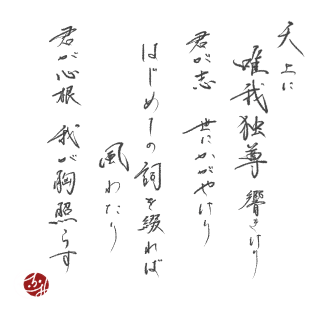 天上に
唯我独尊 響きけり
君が志 世にかがやけり
はじめての詞を綴れば
風わたり
君が心根 我が胸照らす